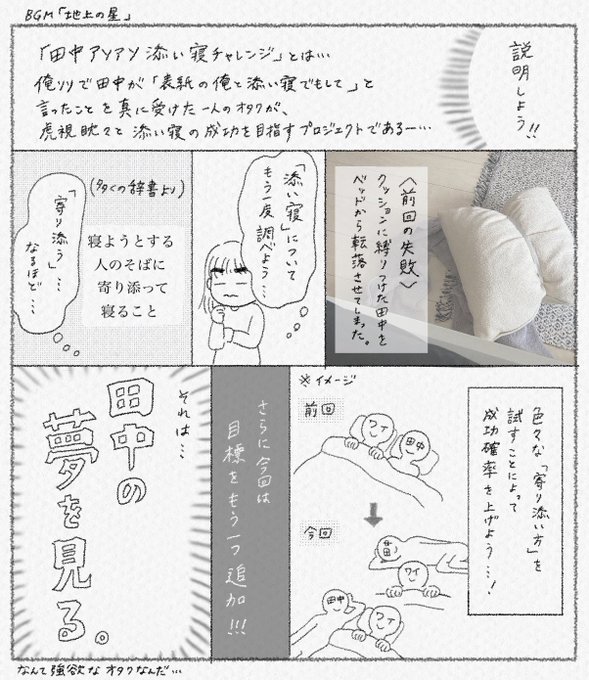 BGM「地上の星」
説明しよう!!
「田中アンアン添い寝チャレンジ」とは…
俺リリで田中が「表紙の俺と添い寝でもして」と
言ったことを真に受けた一人のオタクが、
虎視眈々と添い寝の成功を目指すプロジェクトである…
〈前回の失敗〉
クッションに縛りつけた田中を
ベッドから転落させてしまった。
「添い寝」について
もう一度調べよう…
(多くの辞書より)
寝ようとする
人のそばに
寄り添って
寝ること
「寄り添う」…
なるほど…
色々な「寄り添い方」を
試すことによって
成功確率を上げよう…!
※イメージ
前回
ワイ
田中
今回
田中
ワイ
田中
ワイ
さらに今回は
目標をもう一つ追加!!!
それは…
田中の
夢を見る。
なんて強欲なオタクなんだ…